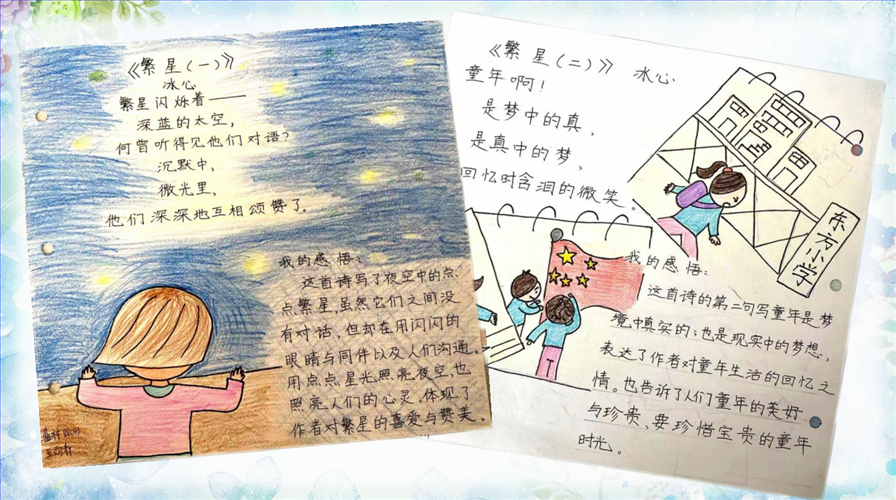 《繁星(一)》
冰心
繁星闪烁着——
深蓝的太空,
何曾听得见他们对语?
沉默中,
微光里,
他们深深地互相颂赞了。
我的感悟:
这首诗写了夜空中的点
点繁星,虽然它们之间没
有对话,但却在用闪闪的
眼睛与同伴以及人们沟通。
用点点星光照亮夜空,也
照亮人们的心灵。体现了
作者对繁星的喜爱与赞美。
《繁星(二)》 冰心
童年啊!
是梦中的真,
是真中的梦,
回忆时含泪的微笑。
东方小学
我的感悟:
这首诗的第二句写童年是梦
境中真实的;也是现实中的梦想,
表达了作者对童年生活的回忆之
情。也告诉了人们童年的美好
与珍贵,要珍惜宝贵的童年
时光。